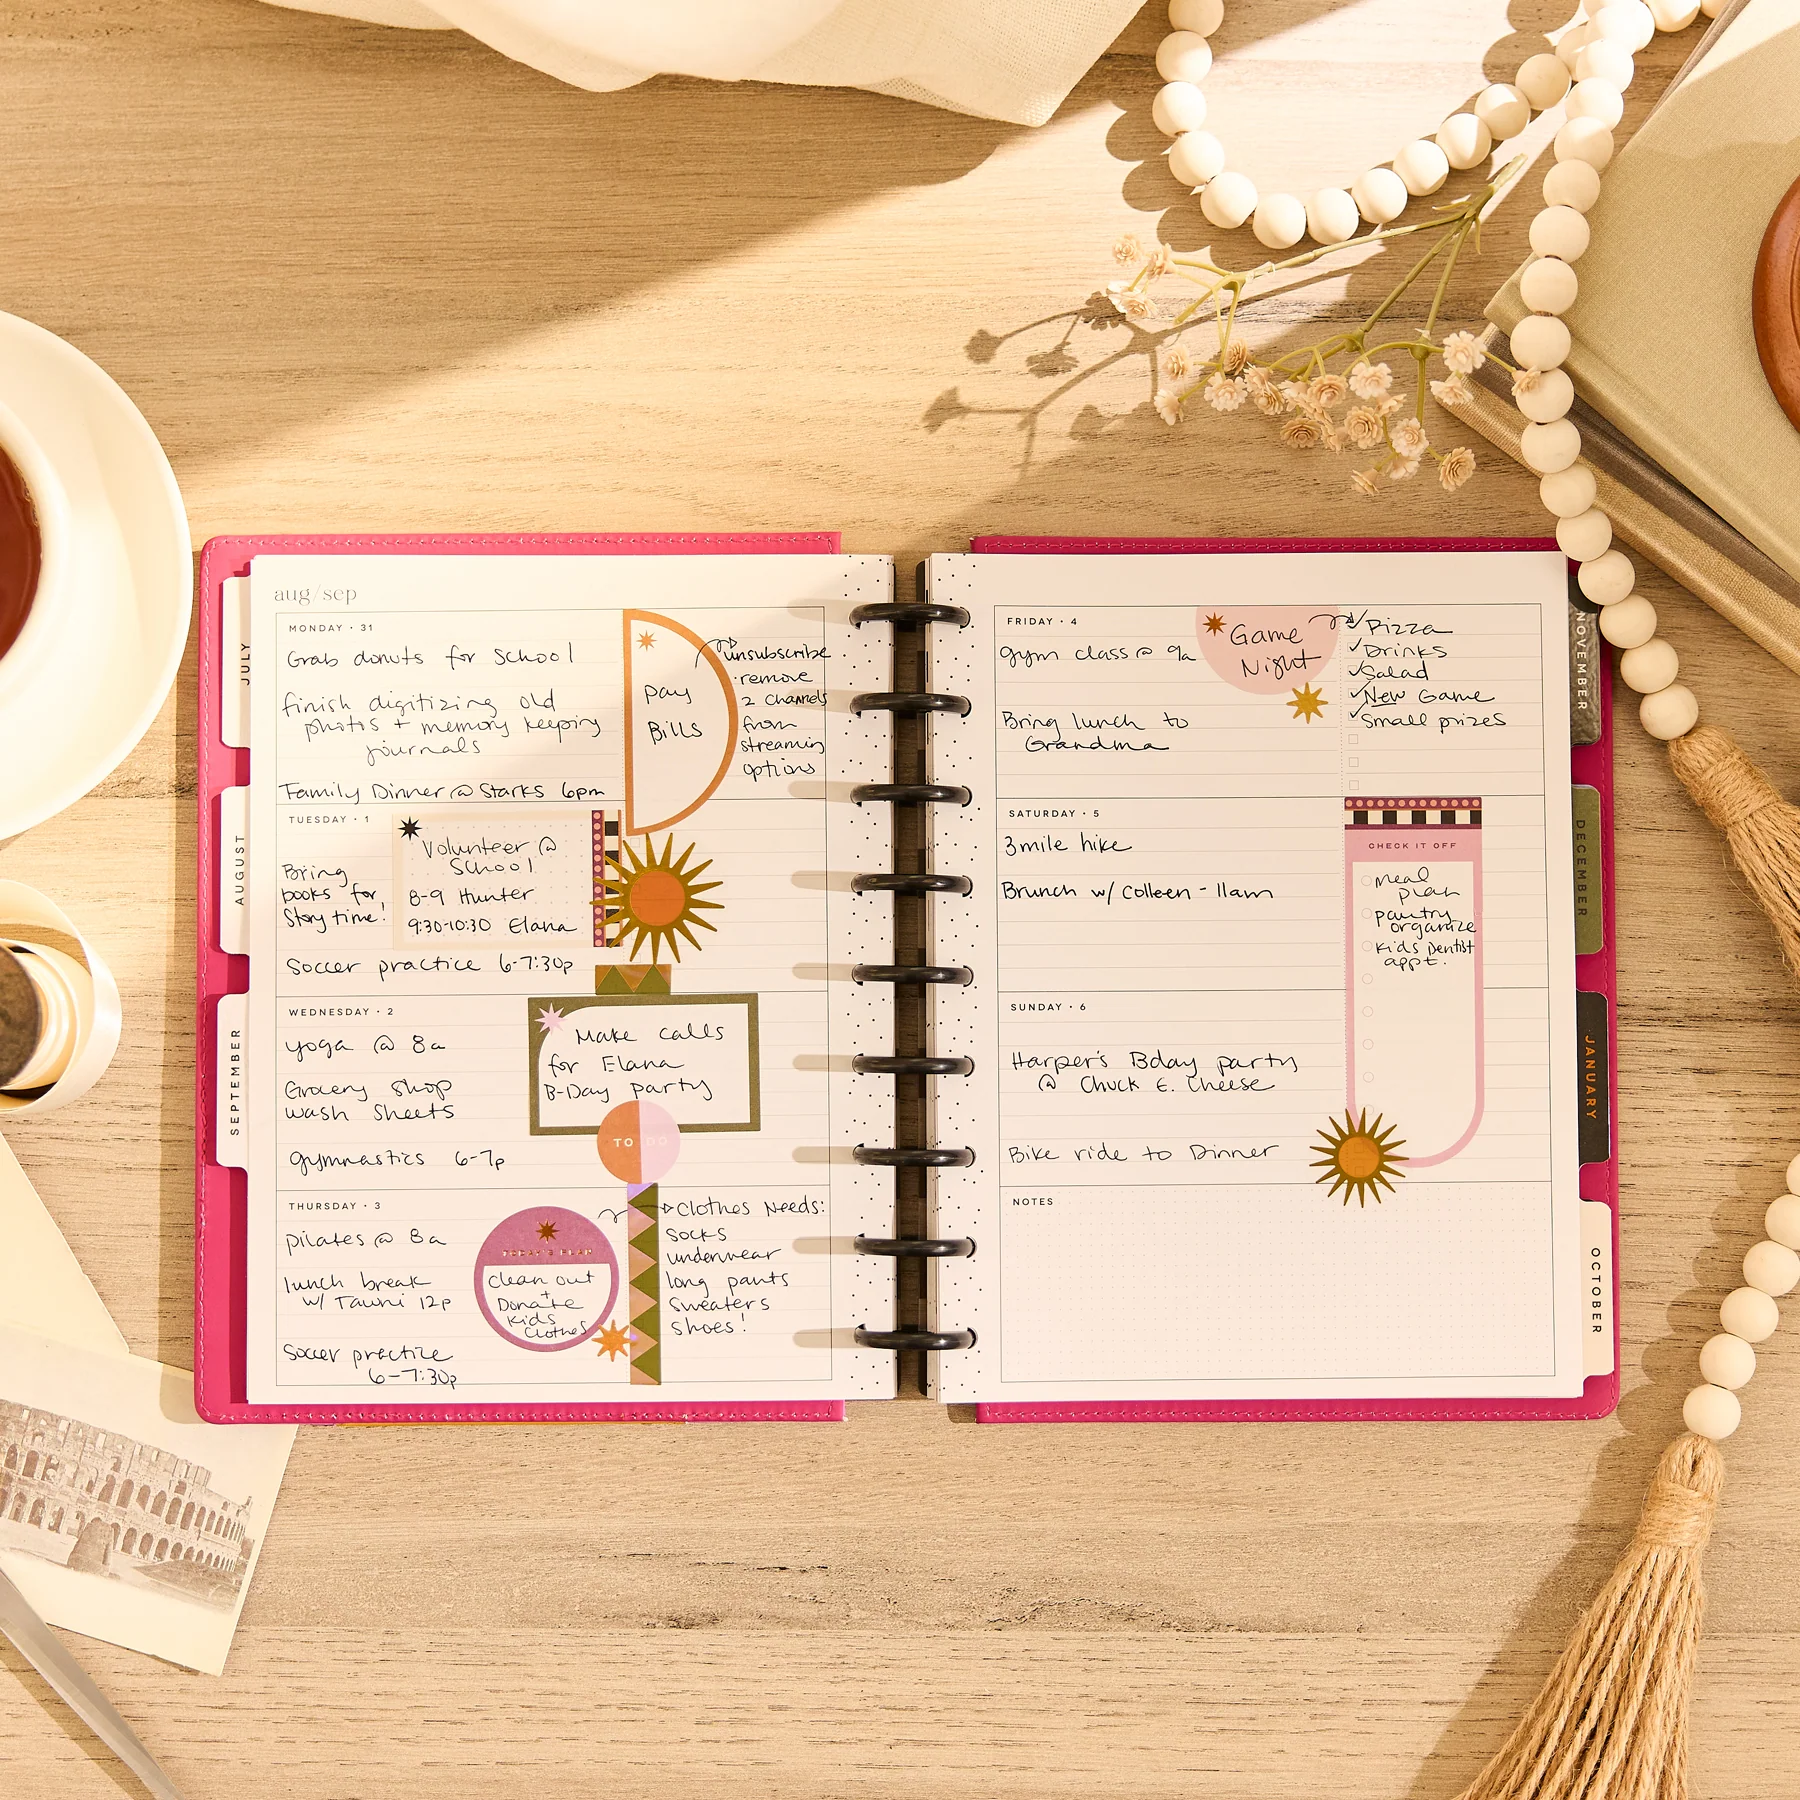 aug/sep
MONDAY • 31
Grab donuts for School
finish digitizing old
photos + memory keeping
journals
Family Dinner @ Starks 6pm
Pay
Bills
unsubscribe
·remove
2 Channels
from
streaming
options
TUESDAY • 1
Bring
books for
Story time!
Volunteer @
School
8-9 Hunter
9:30-10:30 Elana
Soccer practice 6-7:30p
WEDNESDAY • 2
yoga @ 8a
Grocery shop
wash sheets
gymnastics 6-7p
Make calls
for Elana
B-Day party
TO DO
THURSDAY • 3
pilates @ 8a
lunch break
w/ Tawni 12p
Soccer practice
6-7:30p
TODAY'S PLAN
clean out
+
Donate
Kids
Clothes
Clothes Needs:
Socks
underwear
long pants
Sweaters
Shoes!
FRIDAY • 4
gym class @ 9a
Bring lunch to
Grandma
Game
Night
Pizza
Drinks
Salad
New Game
Small prizes
SATURDAY • 5
3 mile hike
Brunch w/ Colleen - 11am
CHECK IT OFF
meal
plan
pantry
organize
Kids Dentist
appt.
SUNDAY • 6
Harper's Bday party
@ Chuck E. Cheese
Bike ride to Dinner
NOTES
JULY
AUGUST
SEPTEMBER
NOVEMBER
DECEMBER
JANUARY
OCTOBER